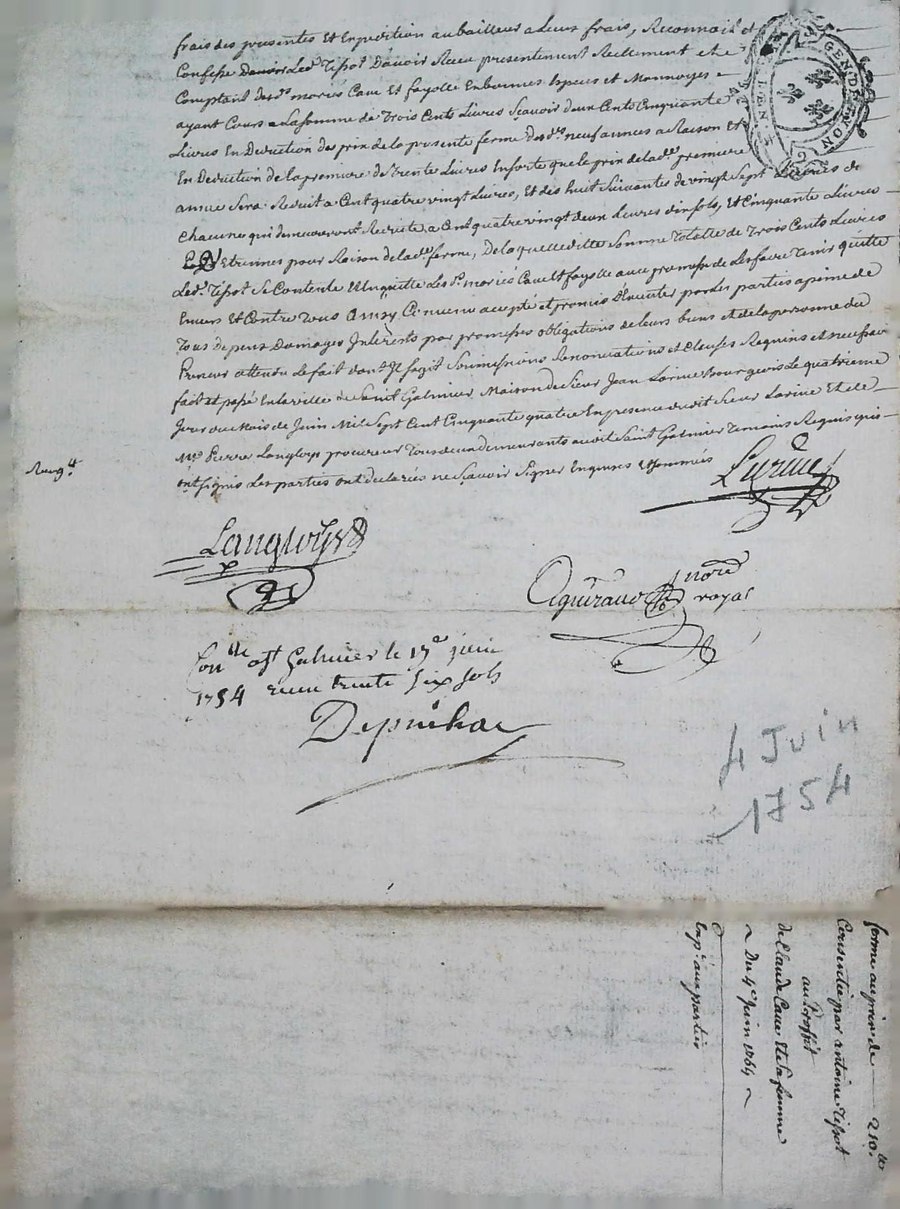 frais des presentes Et Expedition au bailleur a Leurs frais, Reconnait et
Confesse Led. Tissot Davoir Receu presentement Reellement et
Comptant desd. mariés Caue Et fayolle En bonnes Especes et Monnoyes
ayant Cours La somme de Trois Cents Livres Scavoir deux Cents Cinquante
Livres En Deduction du prix de la presente ferme desd. neuf années a Raison Et
En Deduction de la premiere de trente Livres En sorte que le prix de lad. premiere
année Sera Reduit a Cent quatre vingt Livres, Et des huit Suivantes de vingt Sept Livres dix
chacune qui demeureront Reduite a Cent quatre vingt deux Livres dix sols, Et Cinquante Livres
Etrennes pour Raison de lad. ferme, De laquelle ditte Somme Totalle de Trois Cents Livres
Led. Tissot Se Contente Et En quitte Les Sd. mariés Caue Et fayolle avec promesse de Les faire Tenir quitte
Envers Et Contre Tous Ainsy Convenu accepté et promis D'Executer par Les parties a peine de
Tous Depens Domages Interests par promesses obligations de Leurs biens Et de la personne du
Preneur attendu Le fait dont Il s'agit Soumissions Renonciations et Clauses Requises et necessaires
fait et passé En la ville de Saint Galmier Maison de Sieur Jean Larine Bourgeois Le quatrieme
Jour du Mois de Juin Mil Sept Cent Cinquante quatre En presence dudit Sieur Larine Et de
Me. Pierre Langloys procureur Tous deux demeurants audit Saint Galmier Temoins Requis qui
ont signés Les parties ont declarées ne Scavoir Signer Enquises et Sommées
Larine
Langloys
nore
royal
a st Galmier le 17e juin
1754 receu trente six sols
4 Juin
1754
GEN. DE LYON
ferme au prix de 210. lt
Consentie par antoine Tissot
au Proffit
de Claude Caue Et Sa femme
~ Du 4e Juin 1754 ~
Exp. aux parties